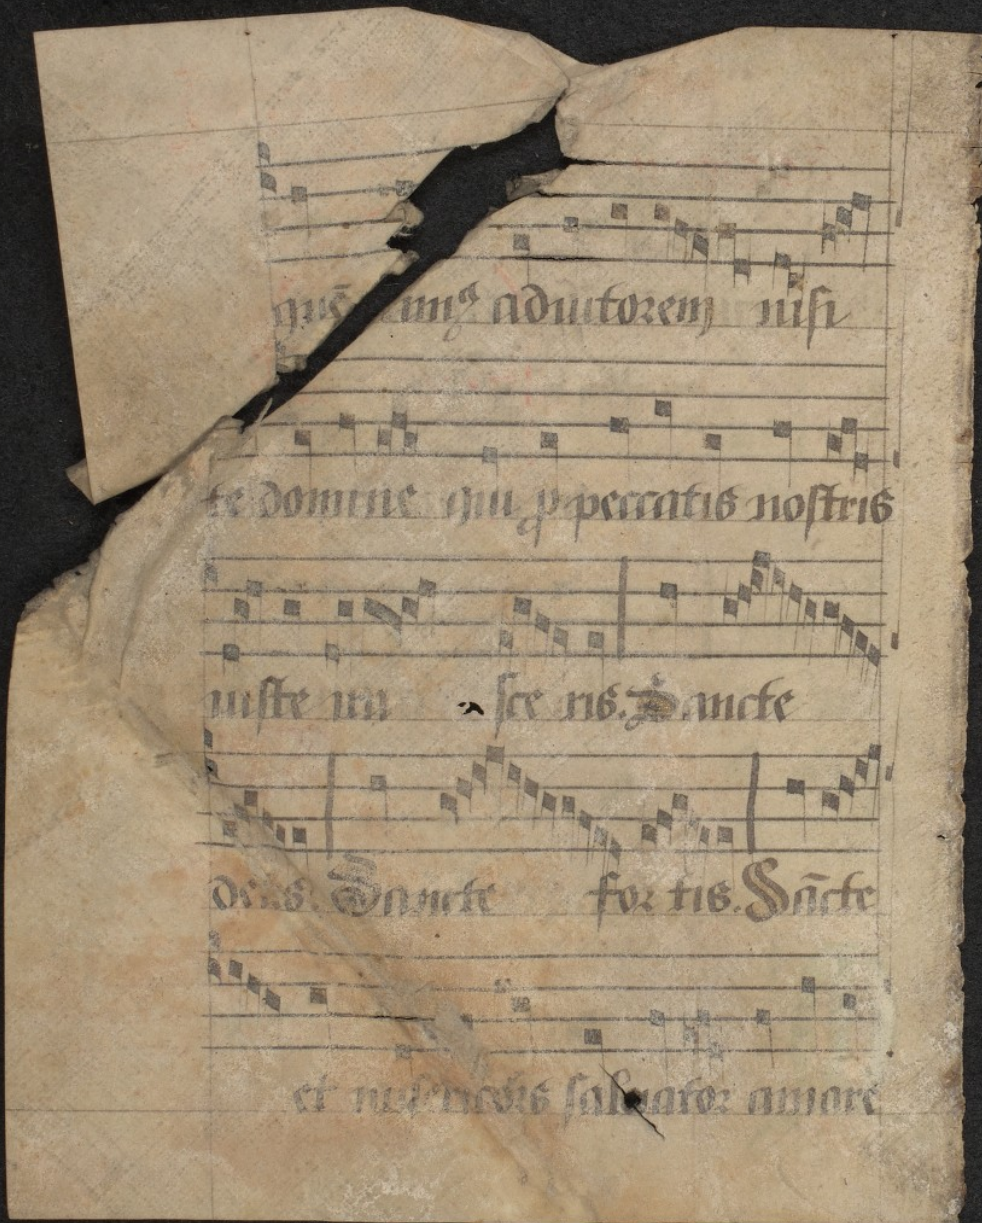 quē im⁹ adiutorem nisi
te domine qui ꝓ peccatis nostris
iuste ira sce ris. Sancte
deus. Sancte for tis. Sācte
et misericors saluator amare